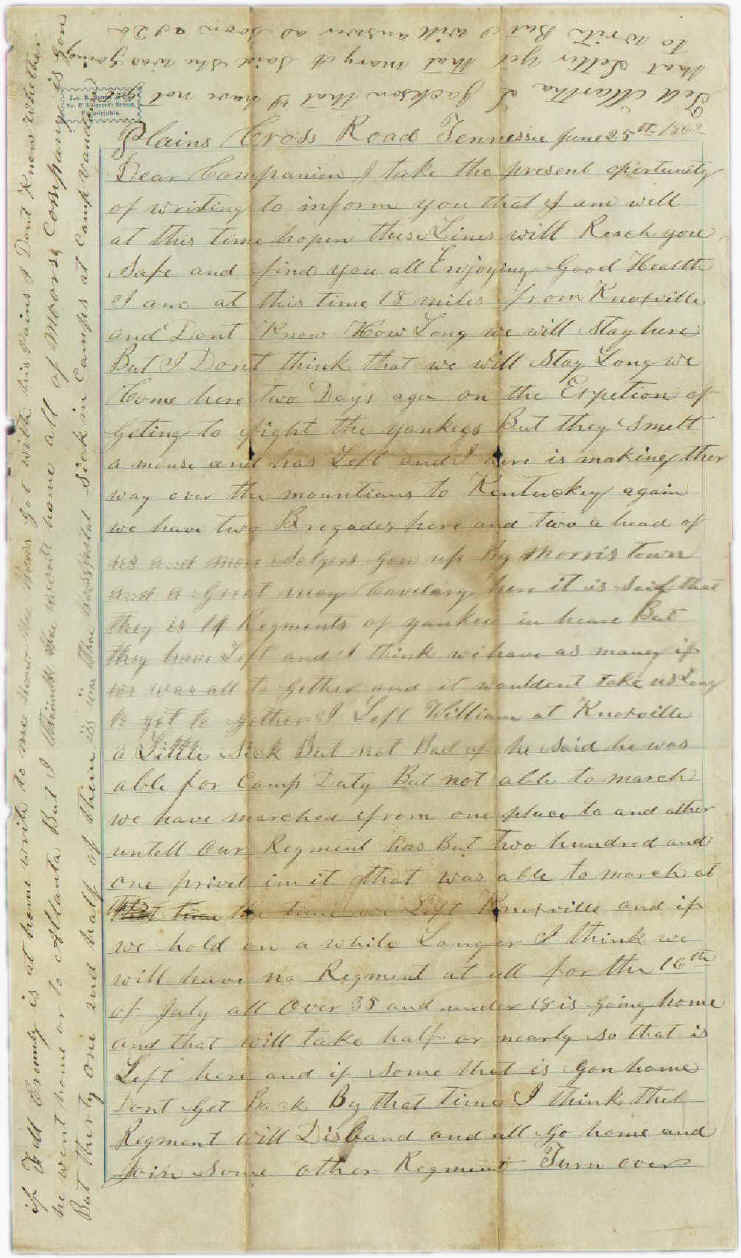 Plains Cross Road Tennessee June 25th 1862
Dear Companion I take the present oportunity
of writing to inform you that I am will
at this time hopen these Lines will Reach you
Safe and find you all Enjoying Good Health
I am at this time 18 miles from Knoxville
and Dont Know How Long we will Stay here
But I Dont think that we will Stay Long we
Come here two Days ago on the Expetion of
geting to fight the yankegs But they Smelt
a mouse and has Left and I here is making ther
way over the mountians to Kentuckey again
we have two Bregades here and two a head of
us and more Solgers gon up By Morris town
and a Great many Cavelary here it is Said that
they is 14 Regments of yankees in heare But
they have Left and I think we have as maney if
we was all to gether and it wouldent take us Long
to get to gether I Left William at Knoxville
a Little Sick But not Bad of he Said he was
able for Camp Duty But not able to march
we have marched from one place to and other
untell our Regment has But two hundred and
one privet in it that was able to march at
the time we Left Knoxville and if
we hold on a while Longer I think we
will have no Regment at all for the 16th
of July all over 35 and under 18 is going home
and that will take half or nearly so that is
Left here and if Some that is gon home
Dont Get Back By that time I think that
Regment will Disband and all Go home and
join Some other Regment Turn over
if Fell is at home write to me how he got with his I Dont Know whether
he went home or to Atlanta But I think he went home all of Moors Company is gon
But thirty one and half of them is in the hospital Sick in Camps at Camp
Tell Martha I Jackson that I have not got
that Letter yet that mary Said She was going
to write But I will answer as Soon as I Do